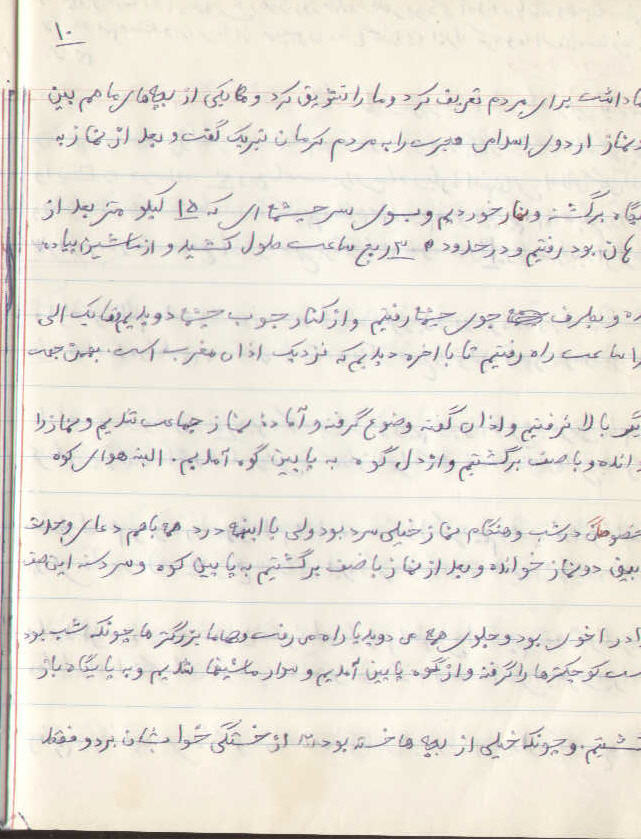 ۱۰
داشت برای مردم تعریف کرد و ما را تشویق کرد و یکی از بچه‌های ما هم بین
نماز اردوی اسلامی هجرت را به مردم کرمان تبریک گفت و بعد از نماز به
برگشته و نهار خوردیم و بسوی سرچشمه‌ای که ۱۵ کیلومتر بعد از
بود رفتیم و در حدود ۳ ربع ساعت طول کشید و از ماشین پیاده
و بطرف جوی چشمه رفتیم و از کنار جوب چشمه دویدیم تا یک الی
ساعت راه رفتیم تا بالاخره دیدیم که نزدیک اذان مغرب است. بهمین جهت
بالا نرفتیم و اذان گفته وضوع گرفته و آماده نماز جماعت شدیم و نماز را
و با صف برگشتیم و از دل کوه به پایین کوه آمدیم. البته هوای کوه
در شب و هنگام نماز خیلی سرد بود ولی با اینهمه درد همه باهم دعای وحدت
بین دو نماز خوانده و بعد از نماز با صف برگشتیم به پایین کوه و سر دسته این صف
اخوی بود و جلوی همه می دوید یا راه می رفت و ما بزرگتر ها چونکه شب بود
کوچکترها را گرفته و از کوه پایین آمدیم و سوار ماشینها شدیم و به پایگاه باز
و چونکه خیلی از بچه ها خسته بودند از خستگی خوابشان برد و فقط